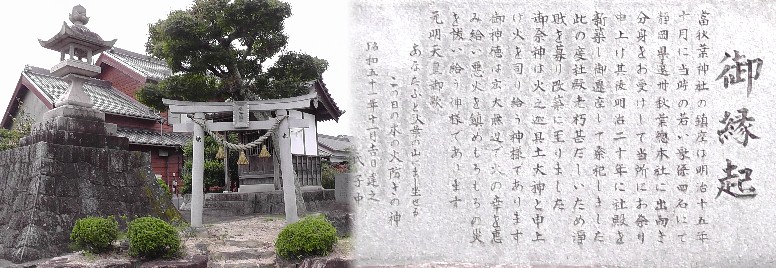 御縁起
当秋葉神社の鎮座は明治十五年
十月に当時の若い衆優四名にて
静岡県遠州秋葉総本社に出向き
分身をお受けして当所にお祭り
申上げ其後明治二十年に社殿を
新築し御遷座して祭祀しました
此の度社殿老朽甚だしいため浄
財を募り改築に至りました
御祭神は火之迦具土大神と申上
げ火を司り給う神様であります
御神徳は広大無辺で火の幸を恵
み給い悪火を鎮めもろもろの災
を祓い給う神様であります
元明天皇御歌
あなたふと秋葉の山にまし坐せる
この日の本の火防ぎの神
昭和五十一年十一月吉日建之
氏子中